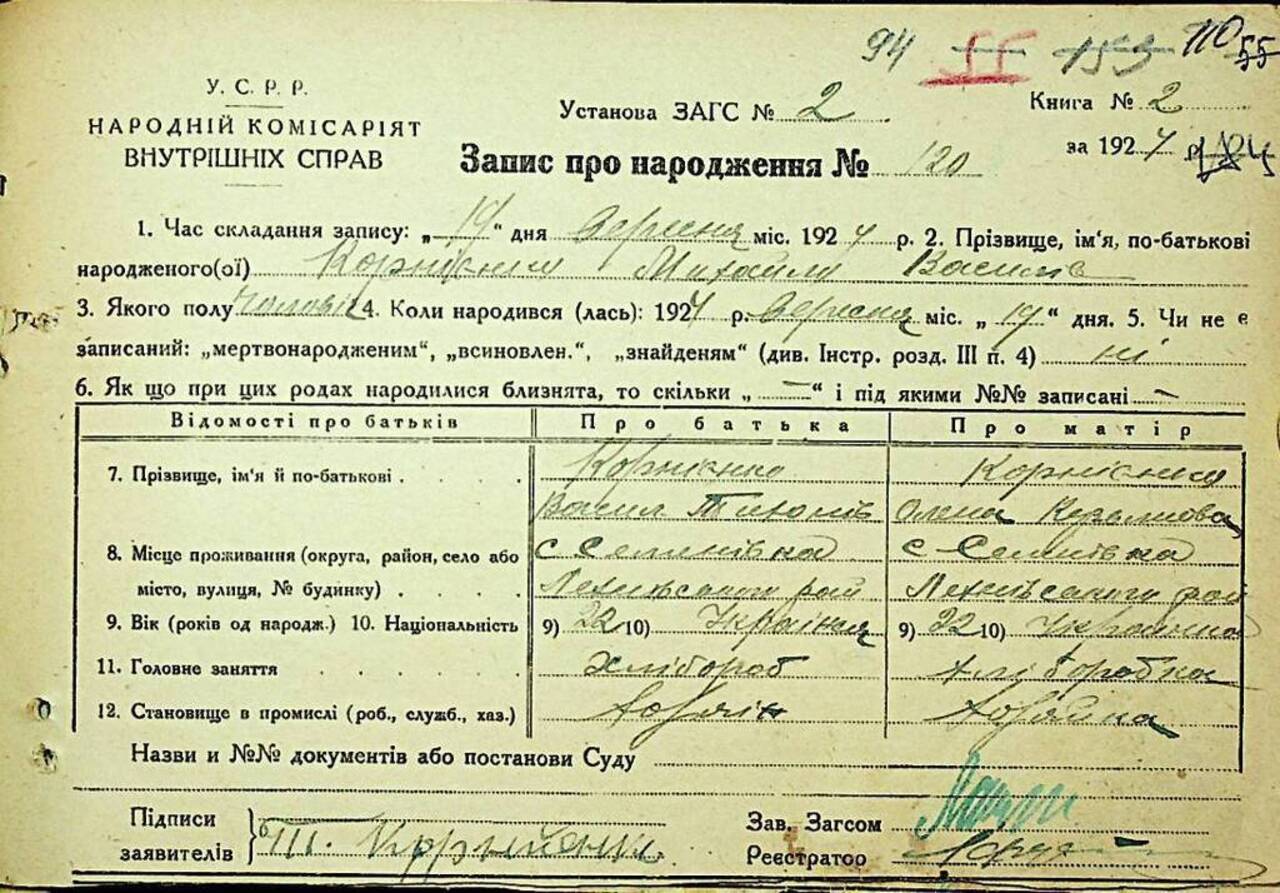 94 55 153 110 55
У. С. Р. Р.
НАРОДНІЙ КОМІСАРІЯТ
ВНУТРІШНІХ СПРАВ
Установа ЗАГС № 2
Книга № 2
за 1927 р.
Запис про народження № 120
1. Час складання запису: „19“ дня Вересня міс. 1927 р. 2. Прізвище, ім'я, по-батькові
народженого(ої) Корнієнко Михайло Василів
3. Якого полу чоловік 4. Коли народився (лась): 1927 р. Вересня міс. „19“ дня. 5. Чи не є
записаний: „мертвонародженим“, „всиновлен.“, „знайденям“ (див. Інстр. розд. III п. 4) ні
6. Як що при цих родах народилися близнята, то скільки „—“ і під якими №№ записані —
Відомості про батьків Про батька Про матір
7. Прізвище, ім'я й по-батькові Корнієнко Корнієнко
Васил Олена
8. Місце проживання (округа, район, село або с Семенівка с Семенівка
місто, вулиця, № будинку) рай рай
9. Вік (років од народж.) 10. Національність 9) 22 10) Українця 9) 22 10) Українка
11. Головне заняття Хлібороб Хліборобка
12. Становище в промислі (роб., служб., хаз.)
Назви и №№ документів або постанови Суду
Підписи
заявителів
Зав. Загсом
Реєстратор